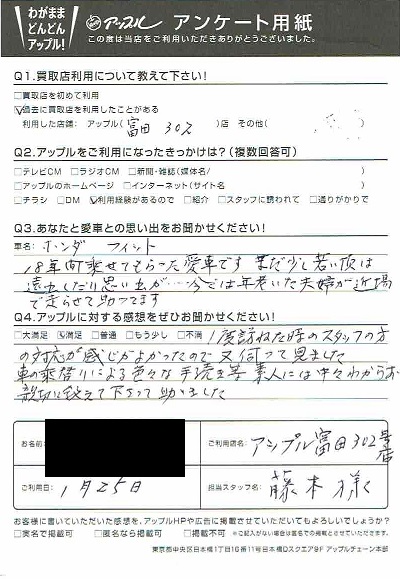 わがまま
どんどん
アップル!
アップル アンケート用紙
この度は当店をご利用いただきありがとうございました。
Q1.買取店利用について教えて下さい!
□買取店を初めて利用
☑過去に買取店を利用したことがある
利用した店舗: アップル(富田302)店 その他(
Q2.アップルをご利用になったきっかけは?(複数回答可)
□テレビCM □ラジオCM □新聞・雑誌(媒体名/ )
□アップルのホームページ □インターネット(サイト名 )
□チラシ □DM ☑利用経験があるので □紹介 □スタッフに誘われて □通りがかりで
Q3.あなたと愛車との思い出をお聞かせください!
車名: ホンダ フィット
18年間乗せてもらった愛車です まだ少し若い頃は
遠出したり思い出が…今では年老いた夫婦が近場
で走らせて
Q4.アップルに対する感想をぜひお聞かせください!
□大満足 ☑満足 □普通 □もう少し □不満 1度訪ねた時のスタッフの方
の対応が感じがよかったので又伺って見ました
車の乗替りによる色々な手続き等 素人には中々わからず
親切に教えて下さって助りました
お名前
ご利用店名: アップル富田302号店
ご利用日: 1月25日
担当スタッフ名: 藤本様
お客様に書いていただいた感想を、アップルHPや広告に掲載させていただいてもよろしいでしょうか?
□実名で掲載可 □匿名なら掲載可 □掲載不可 ※ご記入がない場合は匿名での掲載とさせていただきます。
東京都中央区日本橋1丁目16番11号日本橋Dスクエア9F アップルチェーン本部